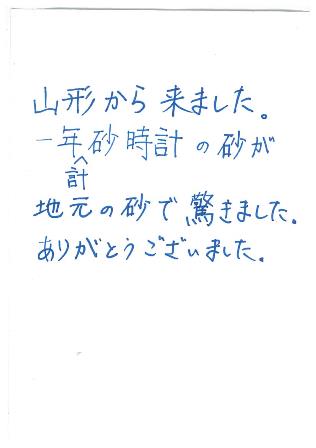 山形から来ました。
一年砂時計の砂が
計
地元の砂で驚きました。
ありがとうございました。